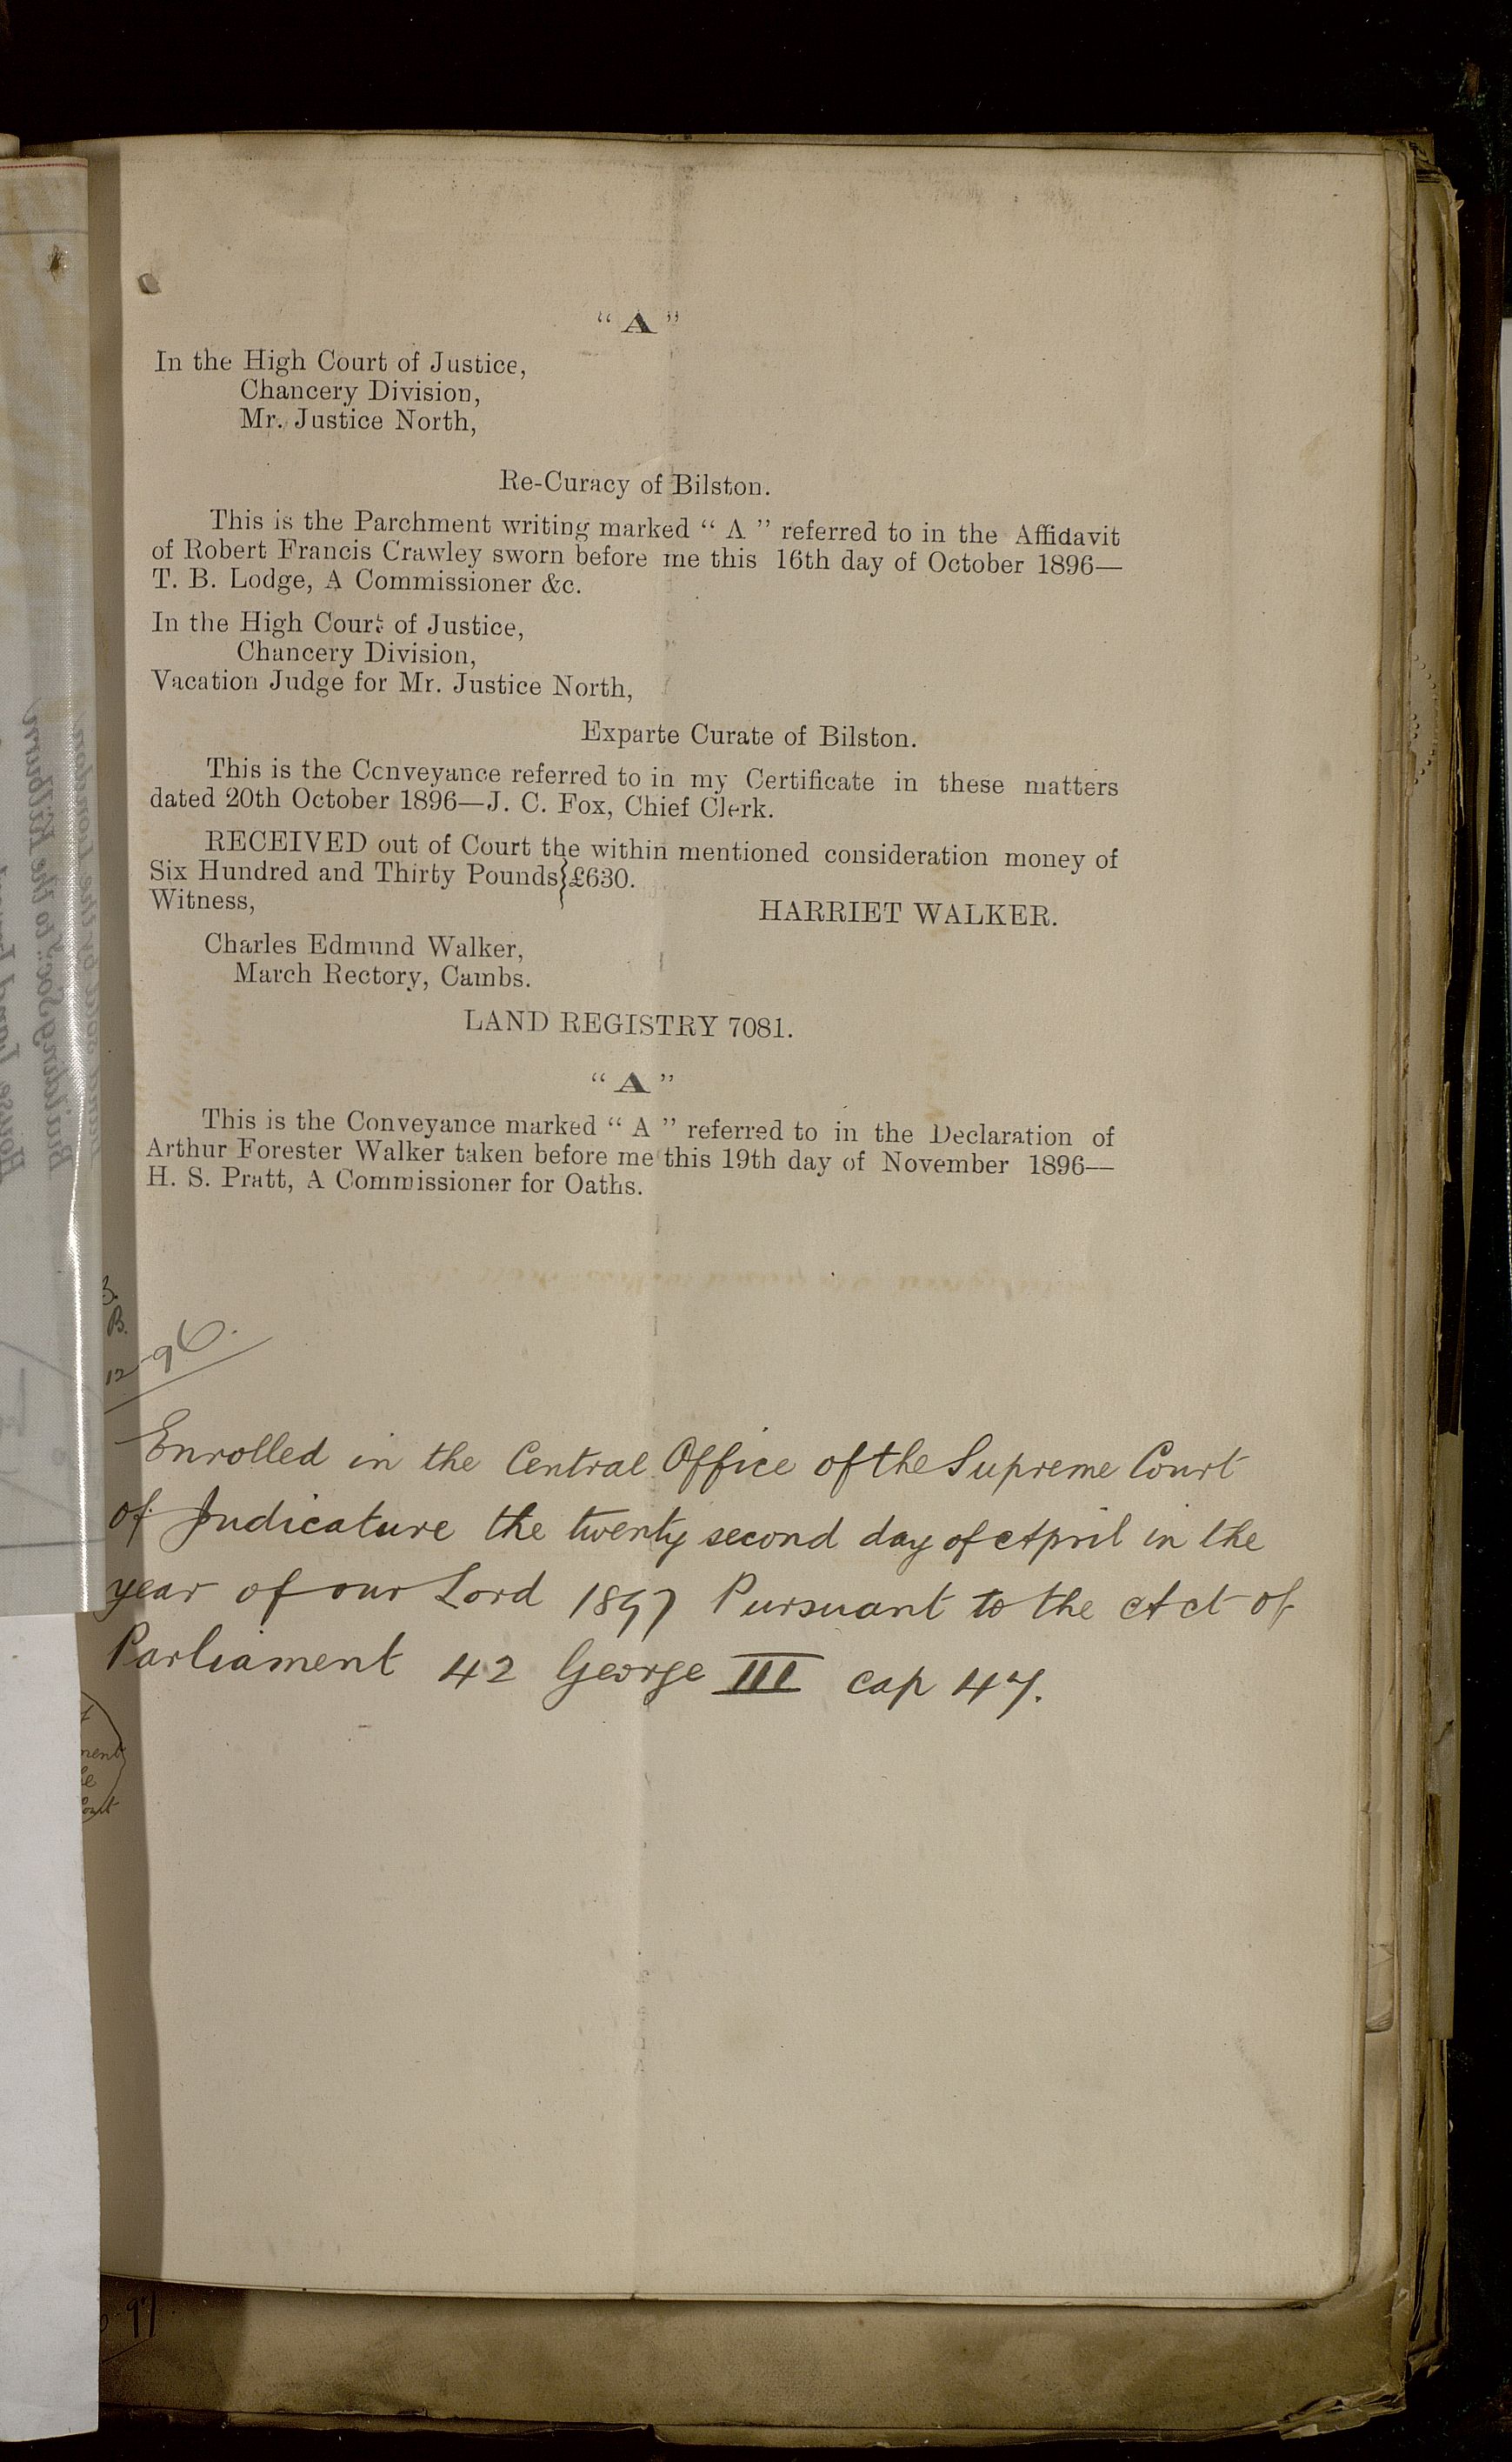 “ A ”
In the High Court of Justice,
Chancery Division,
Mr. Justice North,
Re-Curacy of Bilston.
This is the Parchment writing marked “ A ” referred to in the Affidavit
of Robert Francis Crawley sworn before me this 16th day of October 1896—
T. B. Lodge, A Commissioner &c.
In the High Court of Justice,
Chancery Division,
Vacation Judge for Mr. Justice North,
Exparte Curate of Bilston.
This is the Conveyance referred to in my Certificate in these matters
dated 20th October 1896—J. C. Fox, Chief Clerk.
RECEIVED out of Court the within mentioned consideration money of
Six Hundred and Thirty Pounds}£630.
Witness,
HARRIET WALKER.
Charles Edmund Walker,
March Rectory, Cambs.
LAND REGISTRY 7081.
“ A ”
This is the Conveyance marked “ A ” referred to in the Declaration of
Arthur Forester Walker taken before me this 19th day of November 1896—
H. S. Pratt, A Commissioner for Oaths.
B.
12-96.
Enrolled in the Central Office of the Supreme Court
of Judicature the twenty second day of April in the
year of our Lord 1897 Pursuant to the Act of
Parliament 42 George III cap 47.